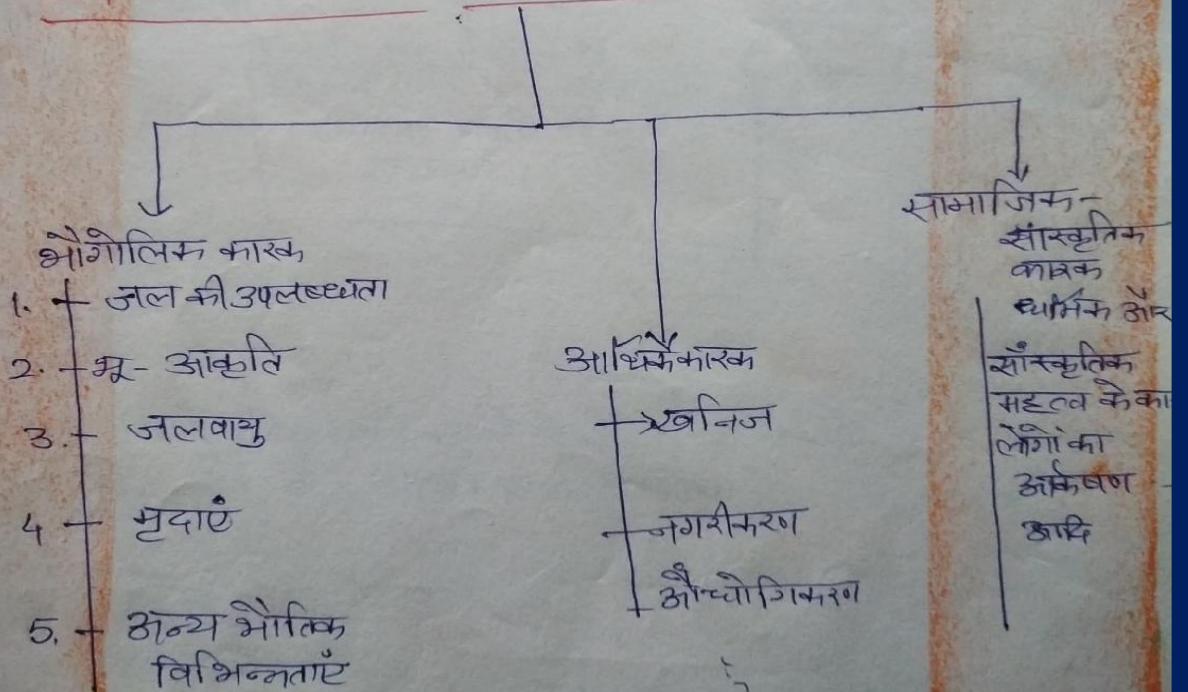 भौगोलिक कारक
1. जल की उपलब्धता
2. भू- आकृति
3. जलवायु
4 मृदाएं
5. अन्य भौतिक
विभिन्नताएँ
आर्थिक कारक
खनिज
नगरीकरण
औद्योगिकरण
सामाजिक-
सांस्कृतिक
कारक
धार्मिक और
साँस्कृतिक
महत्व के का
लोगों का
आर्कषण
आदि